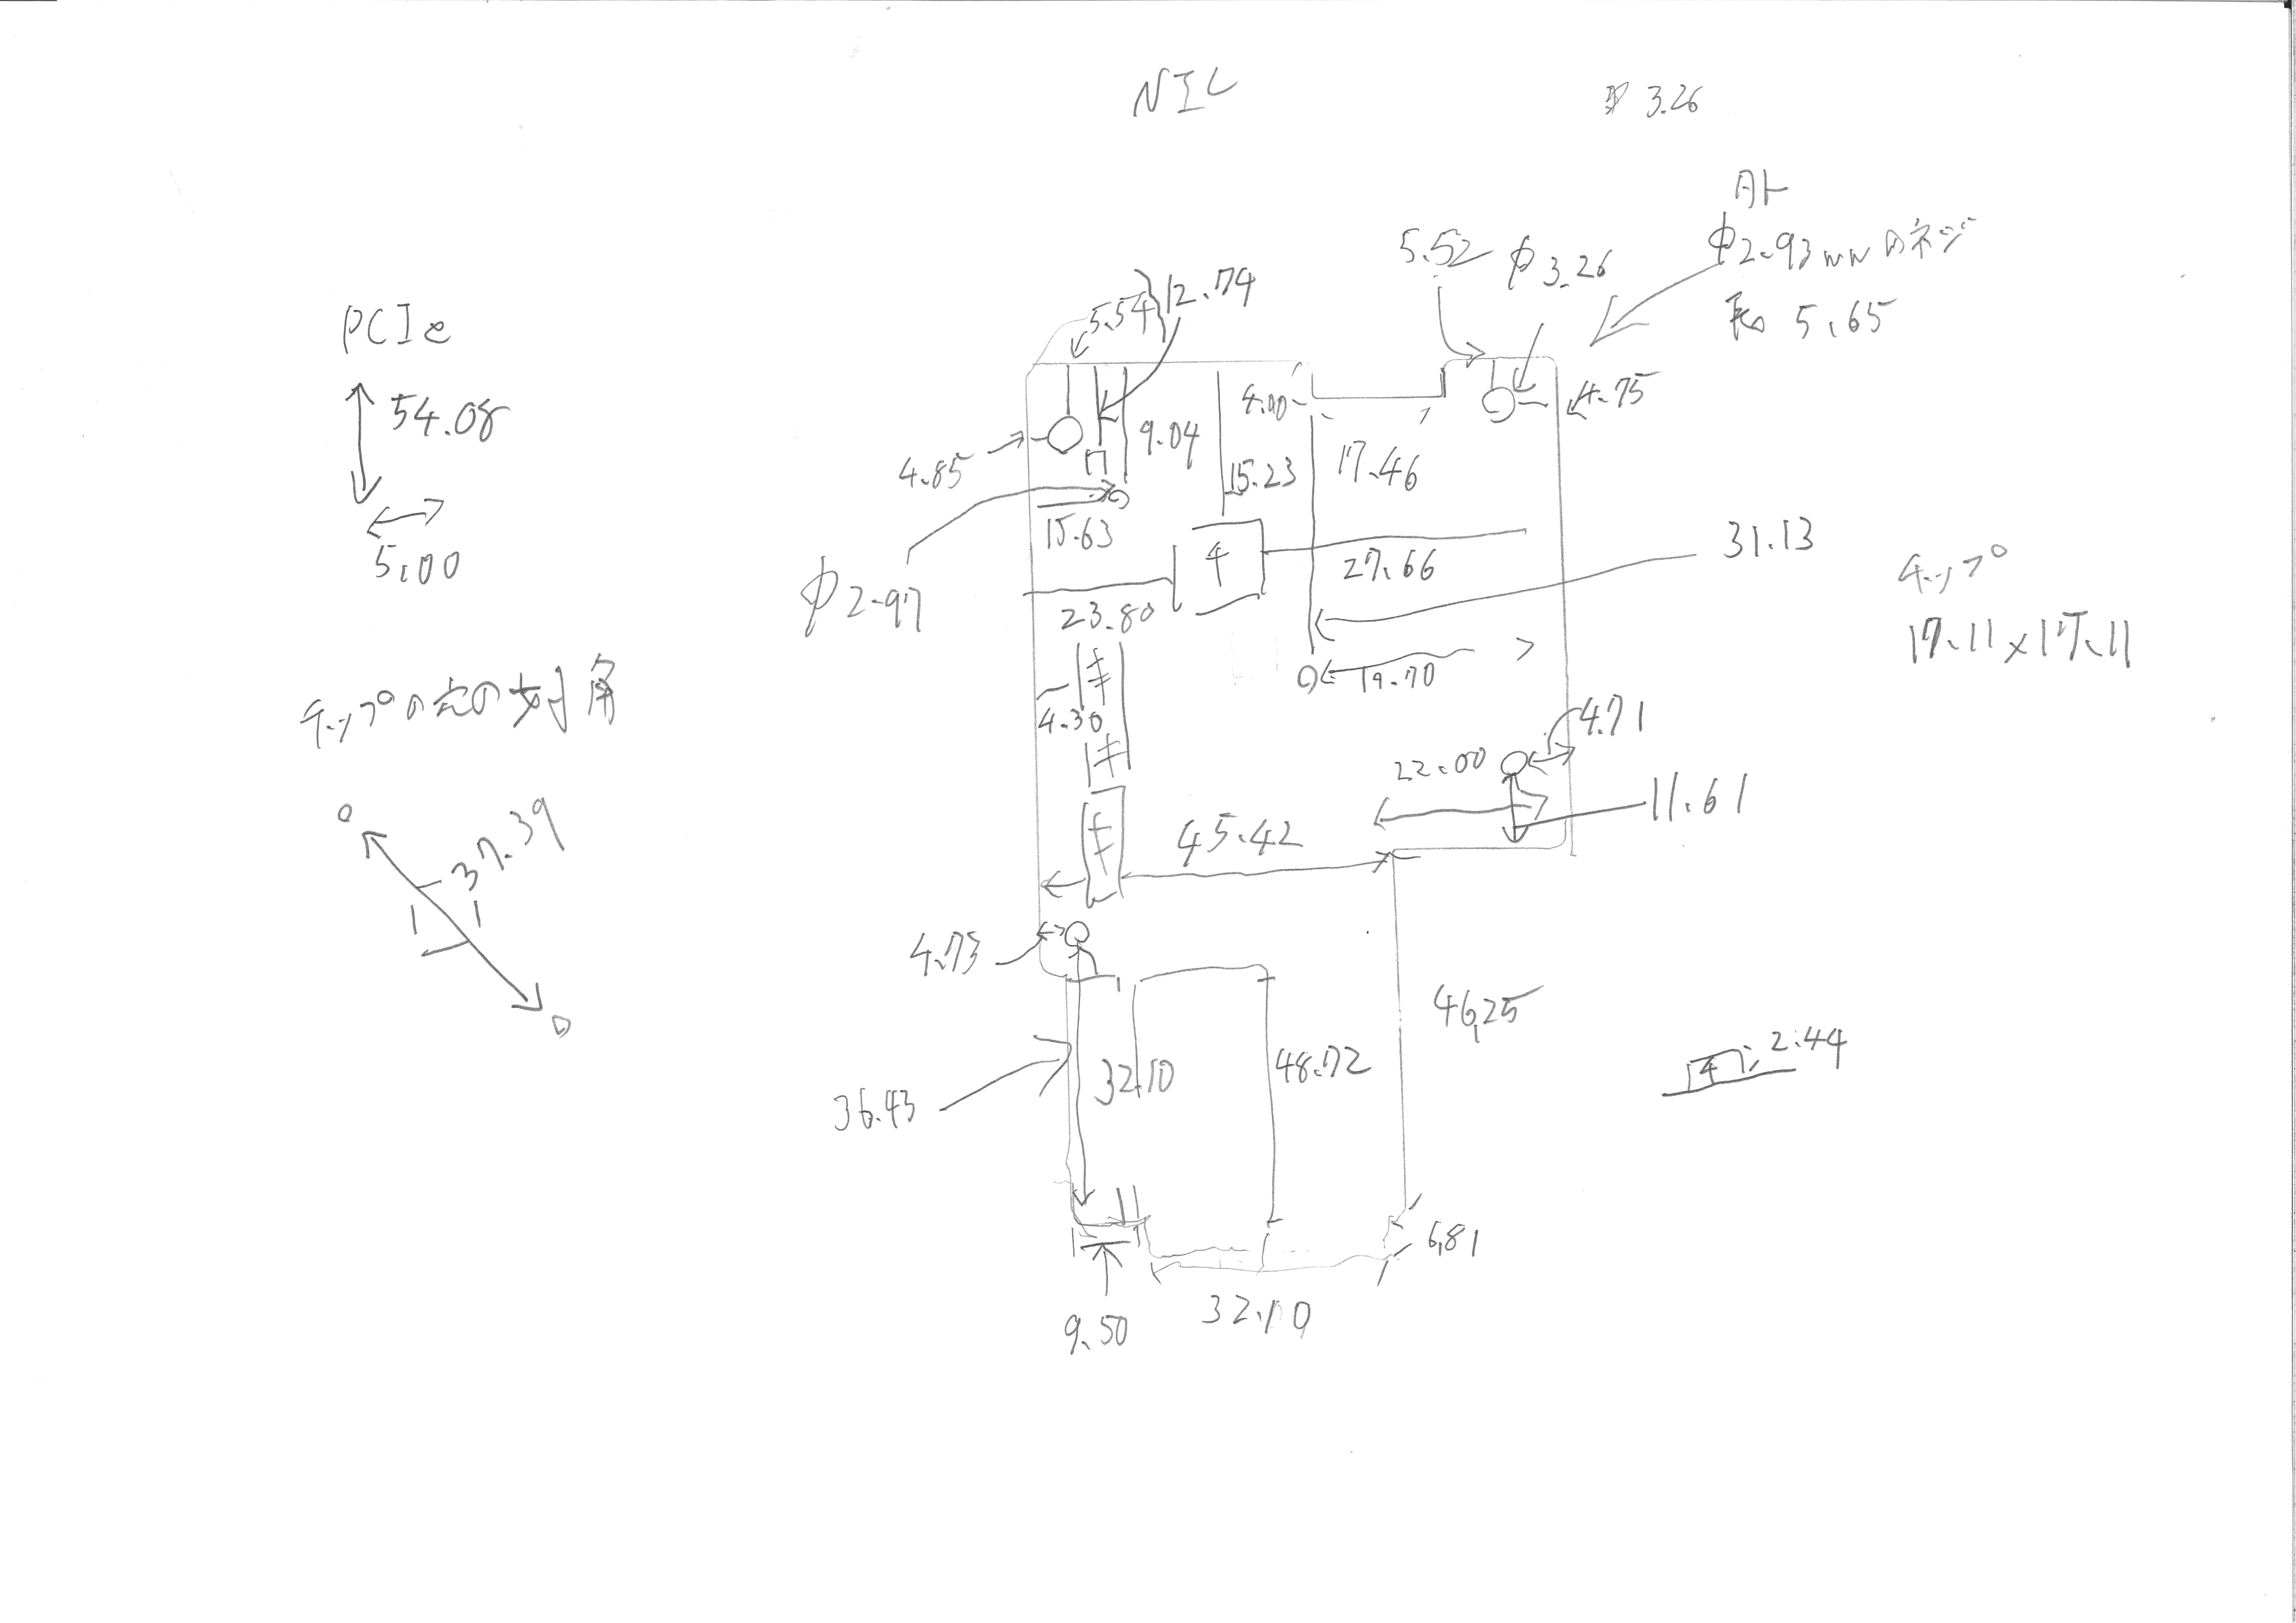 NIC
3.26
φ2.93mmのネジ
長 5.65
5.52
φ3.26
5.54
12.74
PCIe
54.08
5.00
4.75
4.00
9.04
4.85
17.46
15.23
15.63
31.13
チップ
17.11×17.11
27.66
φ2.97
23.80
19.70
チップの穴の対角
37.39
4.30
キ
キ
キ
4.71
22.00
11.61
45.42
4.73
46.25
2.44
32.10
48.72
36.43
6.81
32.10
9.50